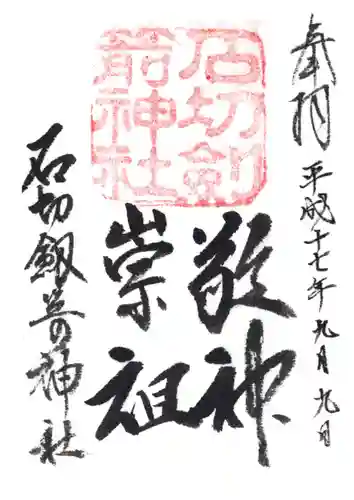 奉拝 平成十七年九月九日
石切劍
箭神社
敬神
崇祖
石切劔箭神社